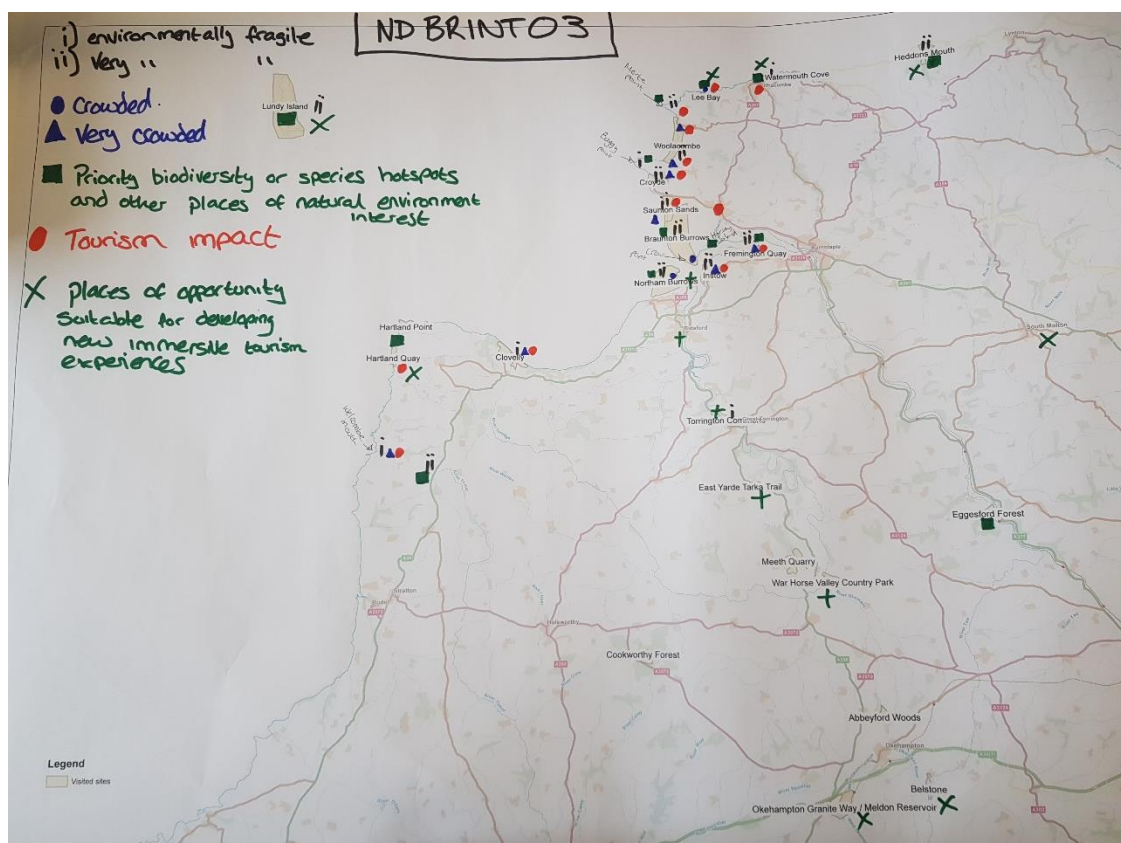 NDBRINT03
i) environmentally fragile
ii) Very " "
Crowded.
Very crowded
Priority biodiversity or species hotspots
and other places of natural environment
interest
Tourism impact
X places of opportunity
Suitable for developing
new immersive tourism
experiences
Lundy Island
ii
ii
Heddons Mouth
Lynton
i
Watermouth Cove
Lee Bay
ii
Woolacombe
ii
i
Croyde
ii
ii
Saunton Sands
Braunton Burrows
ii
ii
Fremington Quay
Barnstaple
ii
Instow
ii
Northam Burrows
Bideford
South Molton
Hartland Point
Hartland Quay
i
Clovelly
Welcombe
mouth
i
ii
Torrington Common
i
East Yarde Tarka Trail
Eggesford Forest
Meeth Quarry
War Horse Valley Country Park
Stratton
Holsworthy
Cookworthy Forest
Abbeyford Woods
Okehampton
Belstone
Okehampton Granite Way / Meldon Reservoir
Legend
Visited sites